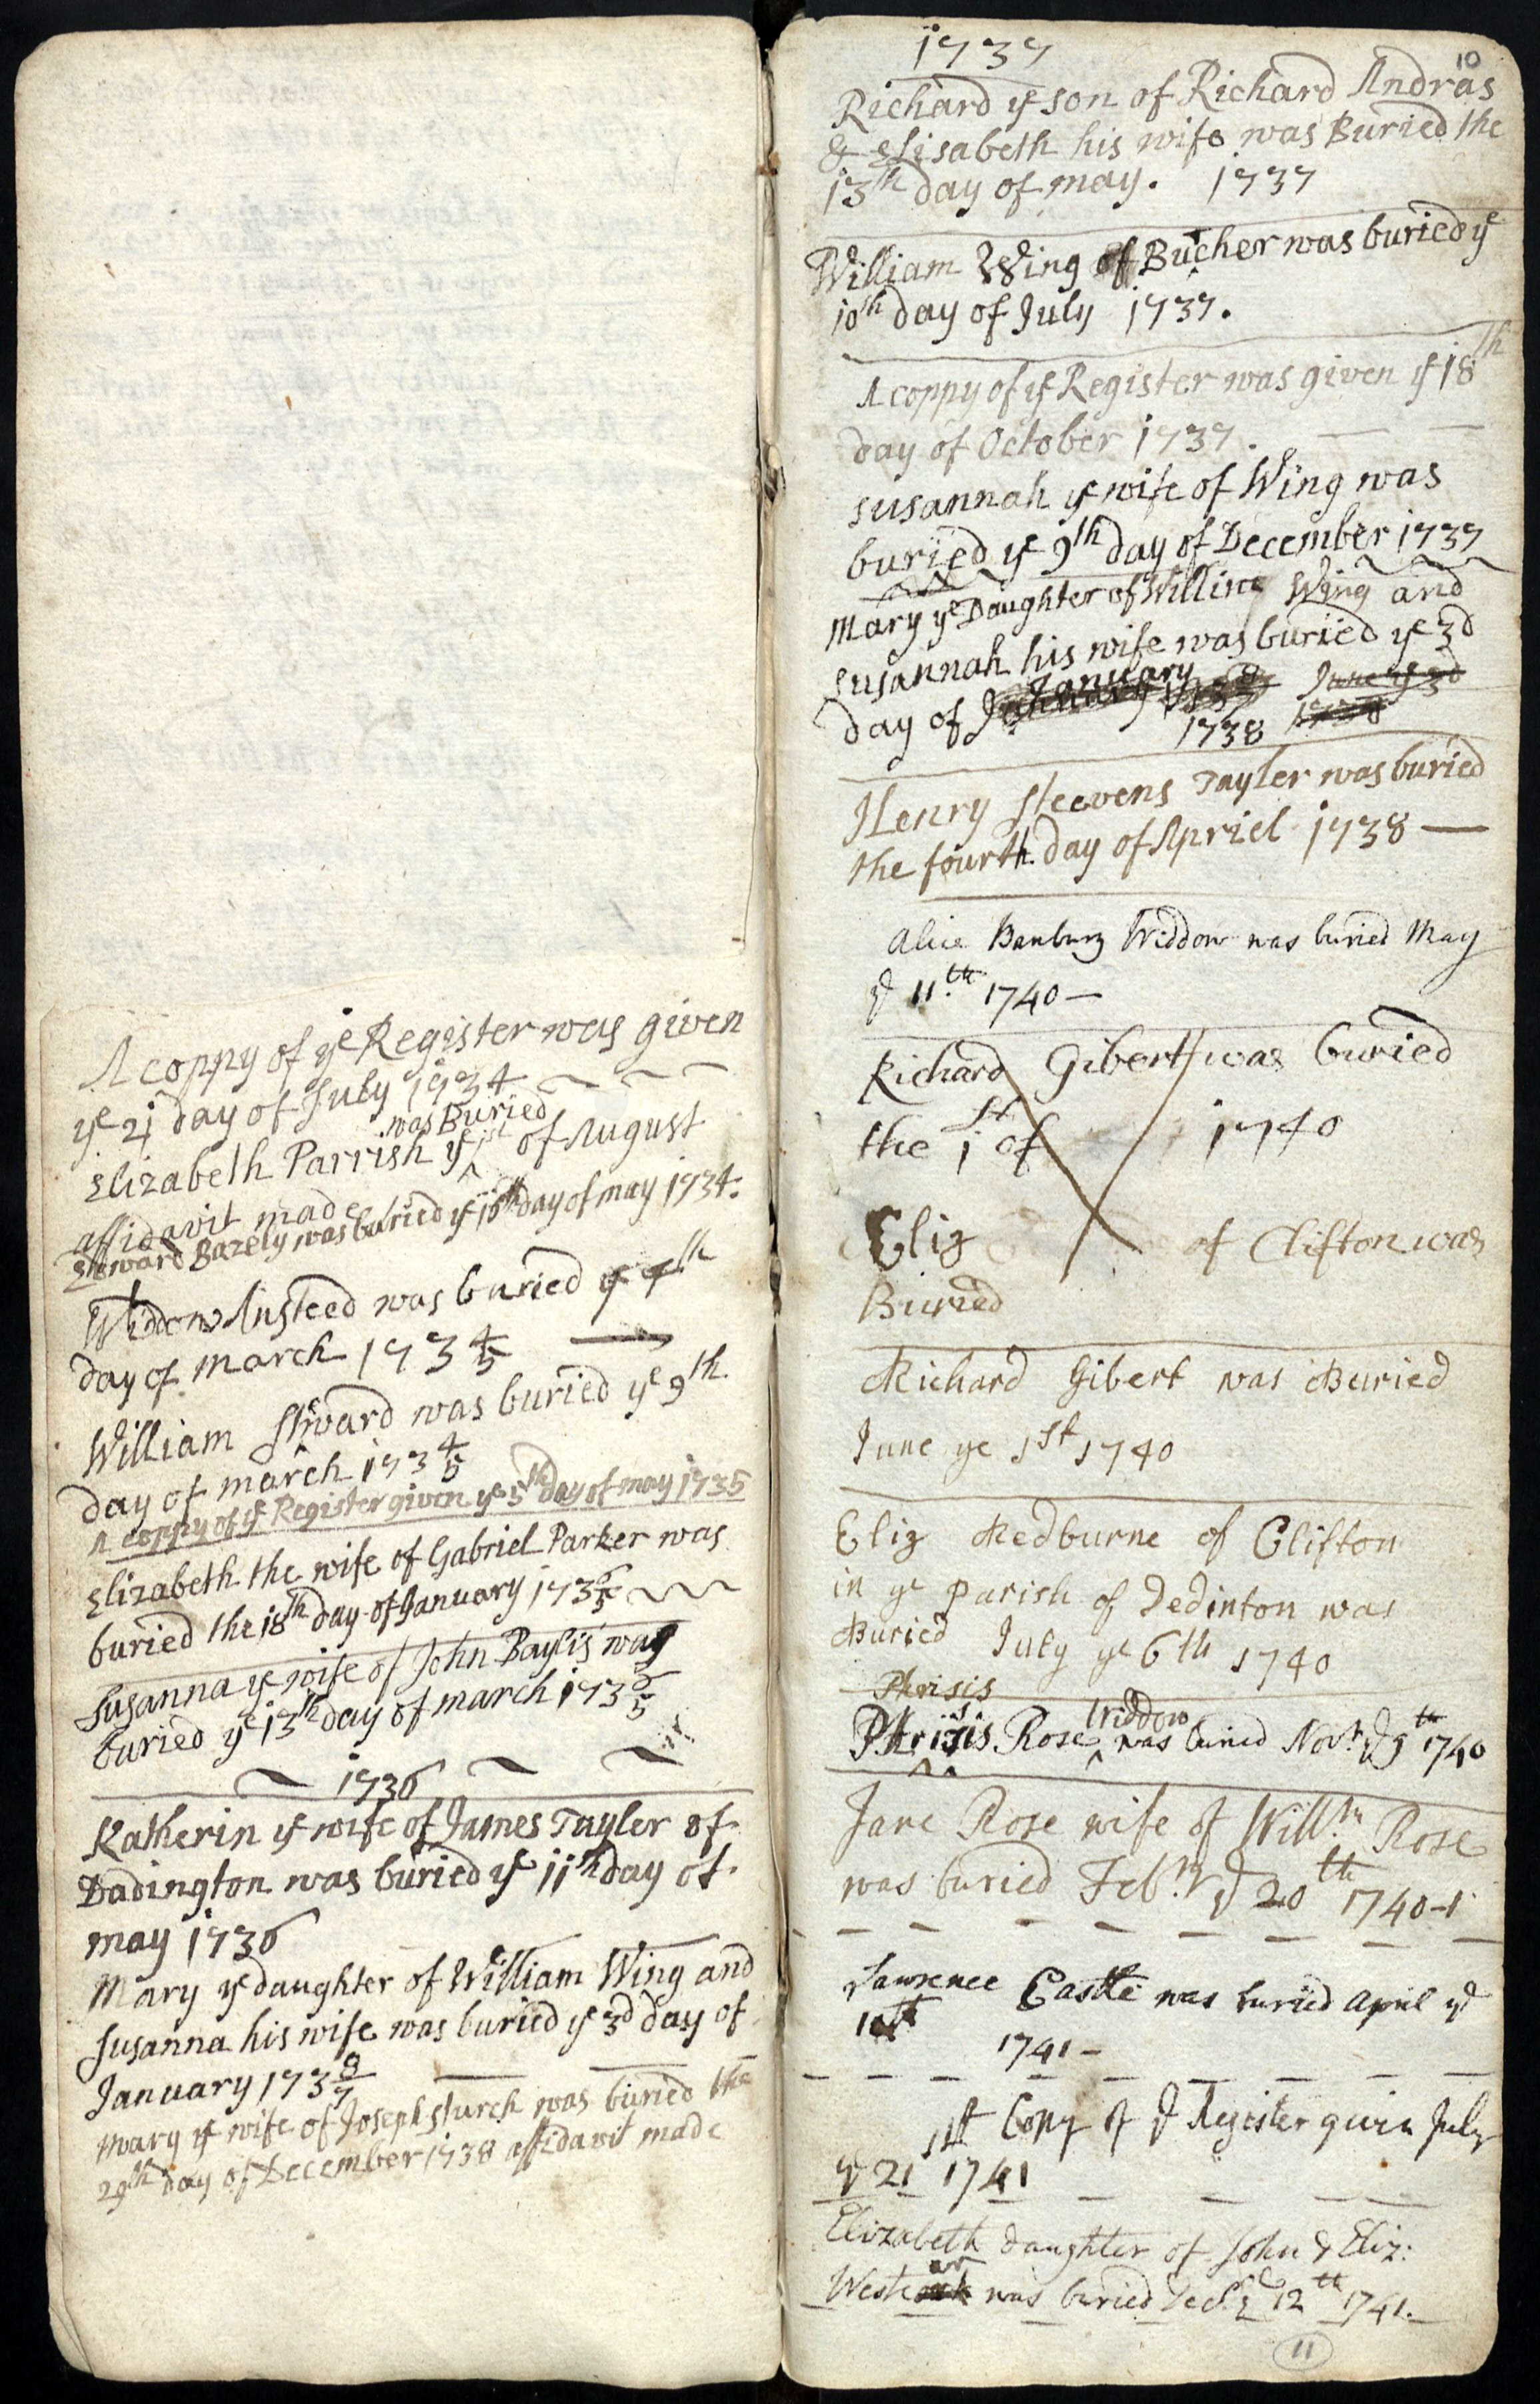 A coppy of ye Register was given
ye 21 day of July 1734
was Buried
Elizabeth Parrish ye 1st of August
affidavit made
Edward Bazely was buried ye 16th day of may 1734.
Widdow Ansteed was buried ye 7th
day of march 173 4/5
William Steward was buried ye 9th
day of march 173 4/5
A coppy of ye Register given ye 5th day of may 1735
Elizabeth the wife of Gabriel Parker was
buried the 18th day of January 173 6/5
Susanna ye wife of John Baylis was
buried ye 13th day of march 173 6/5
1736
Katherin ye wife of James Tayler of
Dadington was buried ye 11th day of
may 1736
Mary ye daughter of William Wing and
Susanna his wife was buried ye 3d day of
January 173 8/7
Mary ye wife of Joseph Sturch was buried the
29th day of December 1738 affidavit made
1737
10
Richard ye son of Richard Andras
& Elisabeth his wife was Buried the
13th day of may. 1737
William Wing of Bucher was buried ye
10th day of July 1737.
A coppy of ye Register was given ye 18th
day of October 1737.
Susannah ye wife of Wing was
buried ye 9th day of December 1737
Mary ye Daughter of Wing and
Susannah his wife was buried ye 3d
day of January June ye 3d
1738 1738
Henry Steevens Tayler was buried
the fourth day of Apriel 1738
Alice Banbury Widdow was buried May
ye 11.th 1740
Richard Gibert was buried
the 1st of 1740
Eliz of Clifton was
Buried
Richard Gibert was Buried
June ye 1st 1740
Eliz Redburne of Clifton
in ye parish of Dedinton was
Buried July ye 6th 1740
Phrisis
Phrisis Rose Widdow was buried Novr. ye 9th 1740
Jane Rose wife of Willm. Rose
was buried Feb.ry ye 20th 1740-1
Lawrence Castle was buried April ye
10th
1741-
A Copy of ye Register given July
ye 21 1741
Elizabeth daughter of John & Eliz:
Westcar was buried Dec. ye 12th 1741.
11